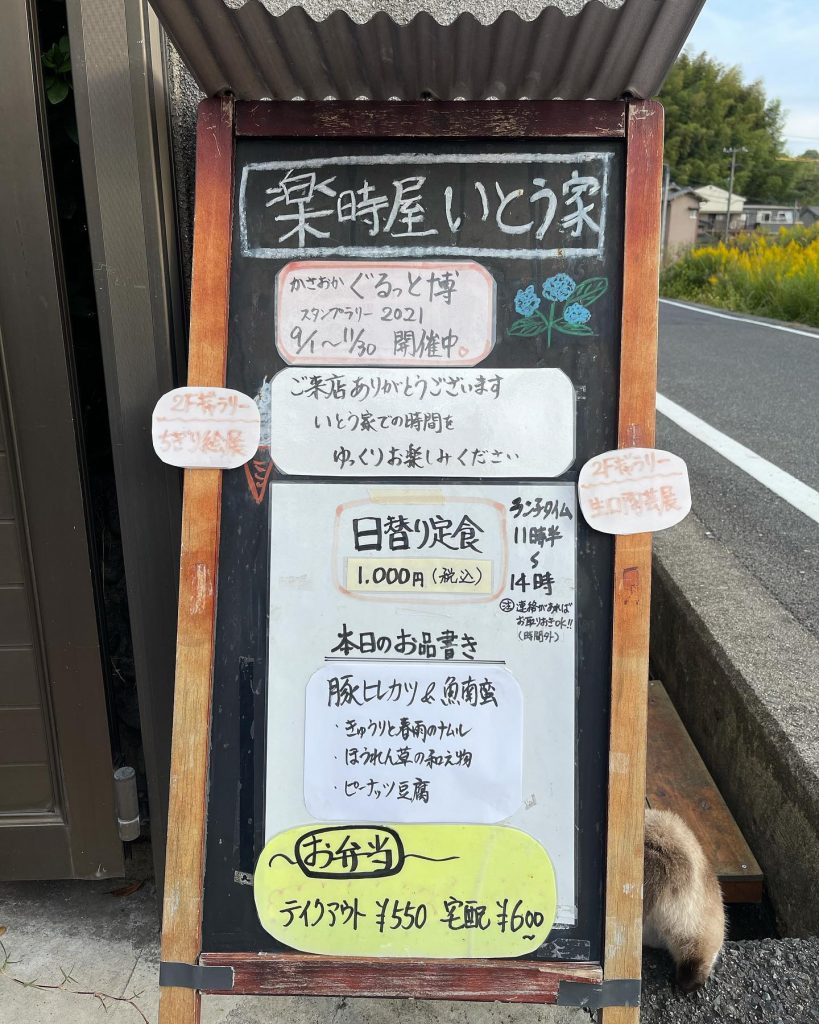 楽時屋 いとう家
かさおか ぐるっと博
スタンプラリー 2021
9/1〜11/30 開催中
ご来店ありがとうございます
いとう家での時間を
ゆっくりお楽しみください
2Fギャラリー
ちぎり絵展
2Fギャラリー
生口陶芸展
日替り定食
1.000円(税込)
ランチタイム
11時半
〜
14時
注 連絡があれば
お取りおきOK!!
(時間外)
本日のお品書き
豚ヒレカツ & 魚南蛮
・きゅうりと春雨のナムル
・ほうれん草の和え物
・ピーナッツ豆腐
〜お弁当〜
テイクアウト ¥550 宅配 ¥600〜